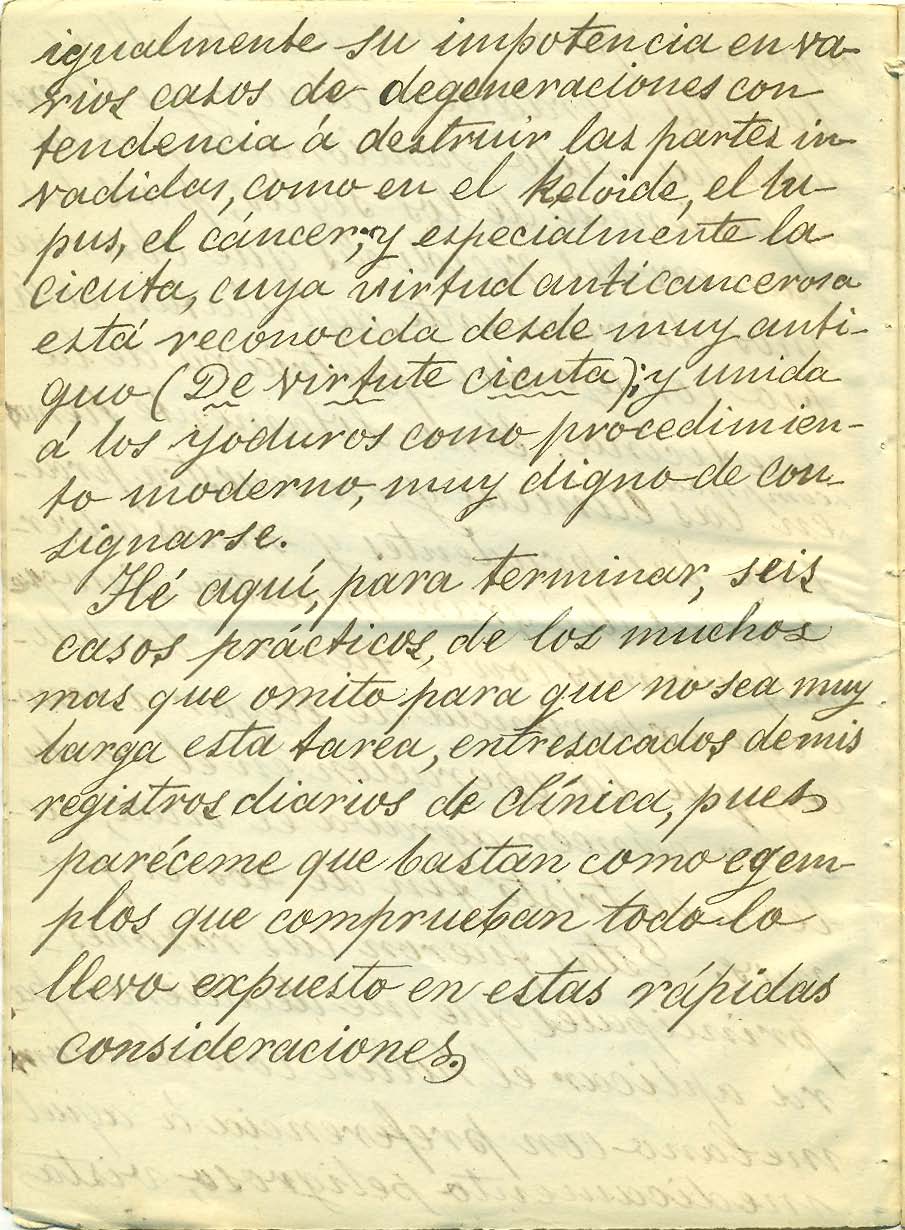 igualmente su impotencia en va-
rios casos de degeneraciones con
tendencia á destruir las partes in-
vadidas, como en el keloide, el lu-
pus, el cáncer; y especialmente la
cicuta, cuya virtud anticancerosa
está reconocida desde muy anti-
guo (De virtute cicuta); y unida
á los yoduros como procedimien-
to moderno, muy digno de con-
signarse.
Hé aquí, para terminar, seis
casos prácticos, de los muchos
mas que omito para que no sea muy
larga esta tarea, entresacados de mis
registros diarios de clínica, pues
paréceme que bastan como egem-
plos que comprueban todo lo
llevo expuesto en estas rápidas
consideraciones.